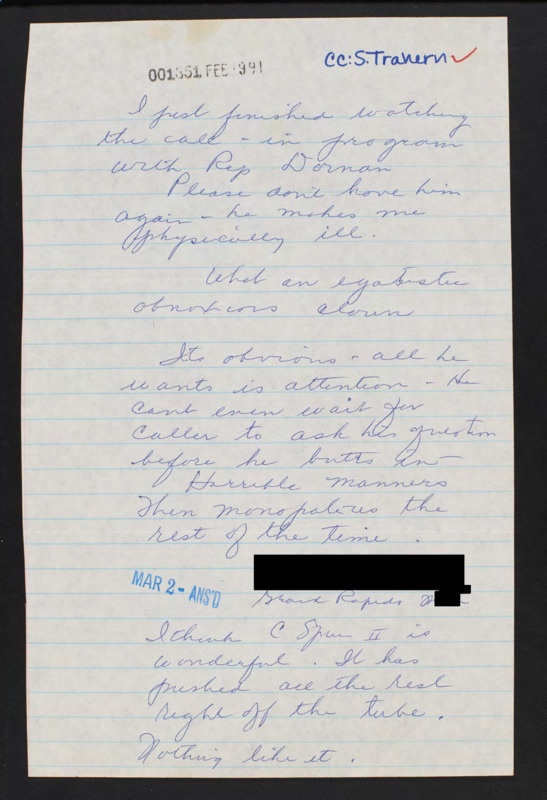 001351 FEB 1991
CC: S. Trahern ✓
I just finished watching
the call - in program
with Rep Dornan
Please don't have him
again - he makes me
physically ill.
What an egotistic
obnoxious clown
Its obvious - all he
wants is attention - He
cant even wait for
caller to ask his question
before he butts in -
Horrible manners
Then monopolizes the
rest of the time.
MAR 2 - ANS'D
Grand Rapids
I think C Span II is
wonderful. It has
pushed all the rest
right off the tube.
Nothing like it.